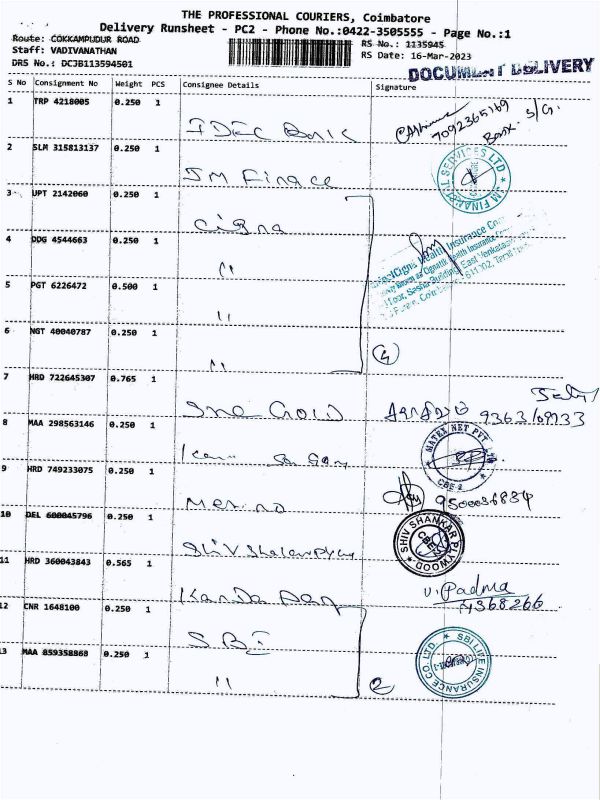 THE PROFESSIONAL COURIERS, Coimbatore
Delivery Runsheet - PC2 - Phone No.:0422-3505555 - Page No.:1
Route: COKKAMPUDUR ROAD
Staff: VADIVANATHAN
DRS No.: DCJB113594501
RS No.: 1135945
RS Date: 16-Mar-2023
DOCUMENT DELIVERY
S No Consignment No Weight PCS Consignee Details Signature
1 TRP 4218005 0.250 1
IDFC Bank 7092365169
Bank. S/G.
2 SLM 315813137 0.250 1
JM Finace JM FINANCIAL SERVICES LTD
3 UPT 2142060 0.250 1
Cigna
4 DDG 4544663 0.250 1
"
5 PGT 6226472 0.500 1
"
6 NGT 40040787 0.250 1
" 4
7 HRD 722645307 0.765 1
9363109933
8 MAA 298563146 0.250 1
MATEX NET PVT LTD CBE-2
9 HRD 749233075 0.250 1
Merino 9500036834
10 DEL 600045796 0.250 1
Shiv Shakar Ply SHIV SHANKAR PLYWOOD CBE
11 HRD 360043843 0.565 1
V. Padma
4368266
12 CNR 1648100 0.250 1
SBI SBI LIFE INSURANCE CO. LTD.
13 MAA 859358868 0.250 1
" 2